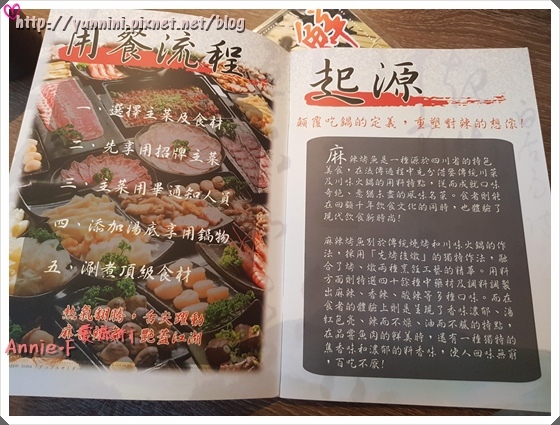 http://yunnini.pixnet.net/blog
用餐流程
一、選擇主菜及食材
二、先享用招牌主菜
三、主菜用畢通知人員
四、添加湯底享用鍋物
五、涮煮頂級食材
熱氣翻騰，舌尖躍動
艷蓋江湖
Annie-F
起源
顛覆吃鍋的定義，重塑對辣的想像!
麻辣烤魚是一種源於四川省的特色
美食，在法傳過程中充分借鑒傳統川菜
及川味火鍋的用料特點，從而成就口味
奇絕、意猶未盡的風味名菜。食者則能
在回顧千年飲食文化的同時，也體驗了
現代飲食新時尚!
麻辣烤魚別於傳統燒烤和川味火鍋的作
法，採用「先烤後燉」的獨特作法，融
合了烤、燉兩種烹飪工藝的精華。用料
方面則特選四十餘種中藥材及調料調製
出麻辣、香辣、酸辣等多種口味。而在
食者的體驗上則是呈現了香味濃郁、湯
紅色亮、辣而不燥、油而不膩的特點，
在品零魚肉的鮮美時，還有一種獨特的
焦香味和濃郁的料香味，使人回味無窮
，百吃不厭!